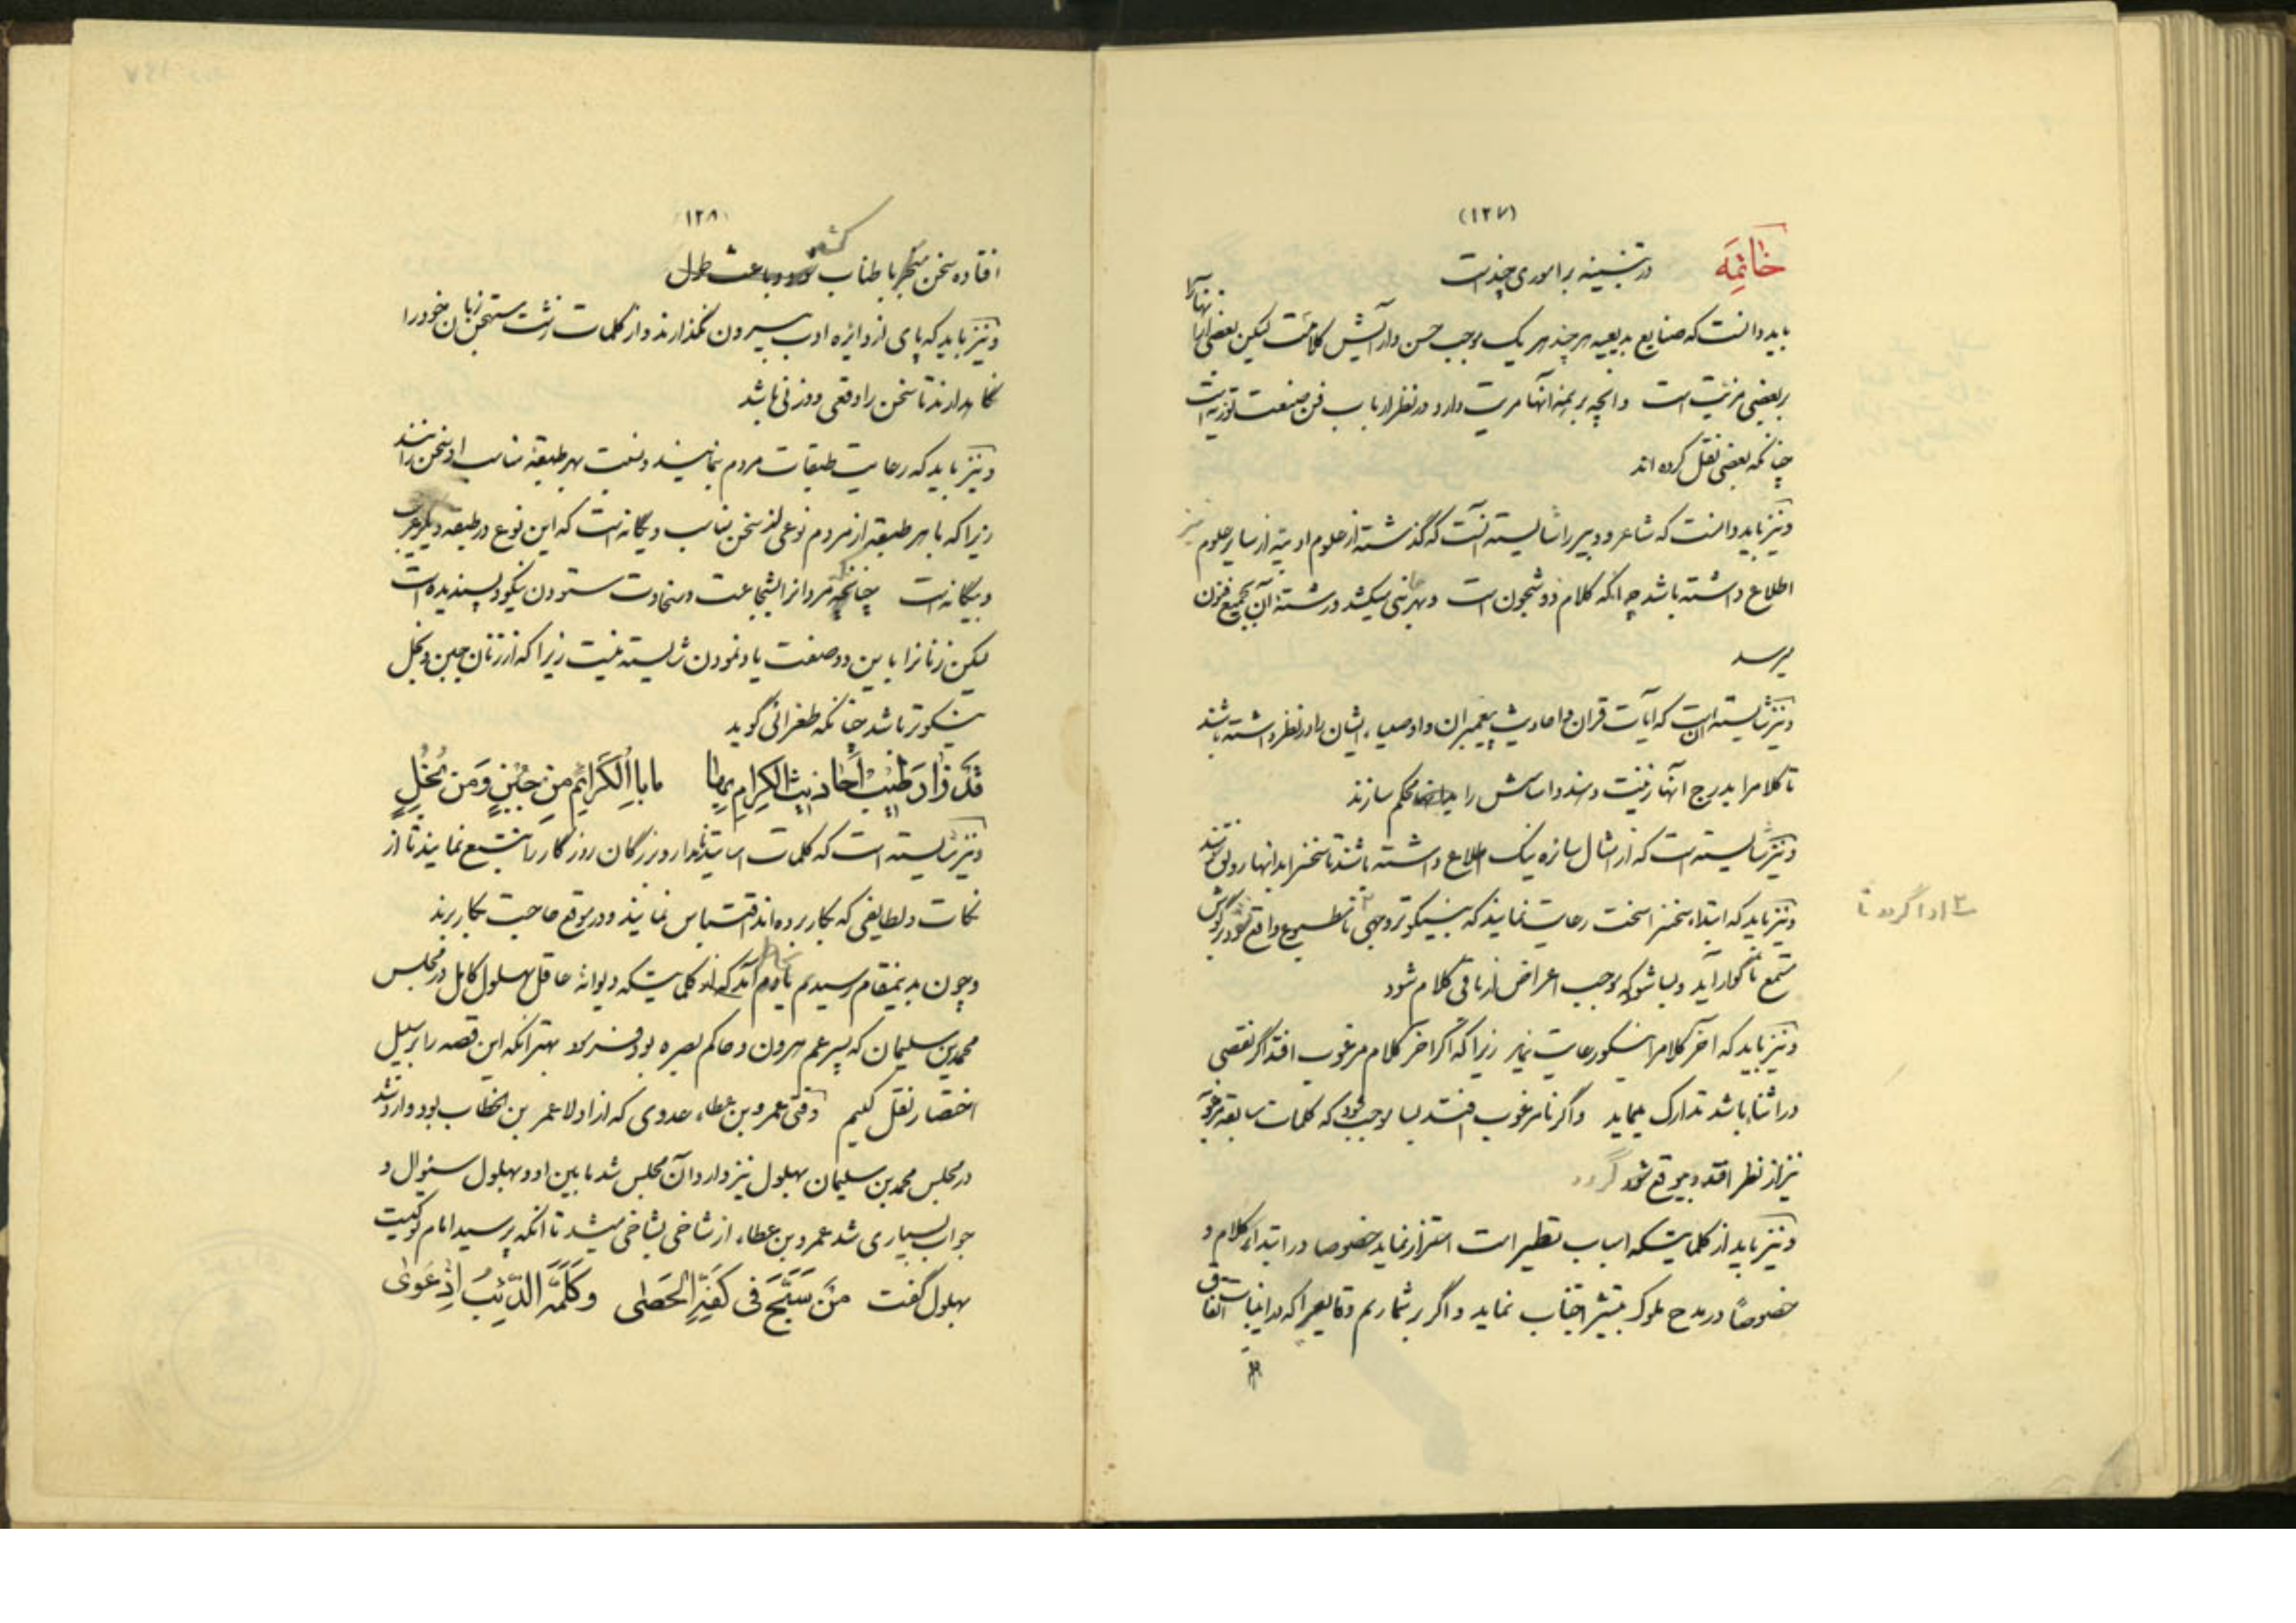 (۱۲۷)
خاتمه در تنبیه بر اموری چند است
باید دانست که صنایع بدیعیه هر چند هر یک موجب حسن و آرایش کلامست لیکن بعضی از آنها را
بر بعضی مزیت است و آنچه بر همه آنها مزیت دارد در نظر ارباب فن صنعت توریه است
چنانکه بعضی نقل کرده اند
و نیز باید دانست که شاعر و دبیر را شایسته آنست که گذشته از علوم ادبیه از سایر علوم نیز
اطلاع داشته باشد چه آنکه کلام ذو شجون است و بهر جانبی میکشد و رشته آن بجمیع فنون
میرسد
و نیز شایسته آنست که آیات قران و احادیث پیغمبران و اوصیاء ایشان را در نظر داشته باشند
تا کلام را بدرج آنها زینت دهند و اساسش را محکم سازند
و نیز شایسته است که از امثال سائره نیک اطلاع داشته باشند تا سخن را بدانها رونق دهند
و نیز باید که ابتداء سخن را سخت رعایت نمایند که به نیکوتر وجهی ۳ تا مطبوع واقع شود در گوش
۳ ادا گردد تا
مستمع ناگوار آید و بسا شود که موجب اعراض از باقی کلام شود
و نیز باید که آخر کلام را نیکو رعایت نماید زیرا که اگر آخر کلام مرغوب افتد اگر نقصی
در اثنا باشد تدارک مینماید و اگر نامرغوب افتد بسا موجب شود که کلمات سابقه مرغوبه
نیز از نظر افتد و بیموقع شود گردد
و نیز باید از کلماتیکه اسباب تطیر است احتراز نماید خصوصا در ابتداء کلام و
خصوصاً در مدح ملوک بیشتر اجتناب نماید و اگر بر شماریم وقایعی را که در این باب اتفاق
(۱۲۸)
افتاده سخن منجر باطناب کشد
و نیز باید که پای از دایره ادب بیرون نگذارند و از کلمات زشت مستهجن زبان خود را
نگاهدارند تا سخن را وقعی و وزنی باشد
و نیز باید که رعایت طبقات مردم نمایند و نسبت بهر طبقه مناسب او سخن رانند
زیرا که با هر طبقه از مردم نوعی از سخن مناسب و یگانه است که این نوع در طبقه دیگر غریب
و بیگانه است چنانچه مردانرا بشجاعت و سخاوت ستودن نیکو و پسندیده است
لیکن زنانرا باین دو صفت یاد نمودن شایسته نیست زیرا که از زنان جبن و بخل
نیکوتر باشد چنانکه طغرائی گوید
قَد زادَ طیبَ أَحادیثِ الکِرامِ بِها ما بِالکَرائِمِ مِن جُبنٍ وَمِن بُخلٍ
و نیز شایسته است که کلمات اساتید نامدار و بزرگان روزگار را تتبع نمایند تا از
نکات و لطایفی که بکار برده اند اقتباس نمایند و در موقع حاجت بکار برند
و چون بدینمقام رسیدیم بخاطرم آمد که از کلماتیکه دیوانه عاقل بهلول کامل در مجلس
محمد بن سلیمان که پسر عم هرون و حاکم بصره بود فرمود بهتر آنکه این قصه را بر سبیل
اختصار نقل کنیم وقتی عمرو بن عطاء عدوی که از اولاد عمر بن الخطاب بود وارد شد
در مجلس محمد بن سلیمان بهلول نیز وارد آن مجلس شد ما بین او و بهلول سئوال و
جواب بسیاری شد عمرو بن عطاء از شاخی بشاخی میشد تا آنکه پرسید امام تو کیست
بهلول گفت مَن سَبَّحَ فی کَفِّهِ الحَصی وَکَلَّمَهُ الذِّئبُ اِذ عَوی